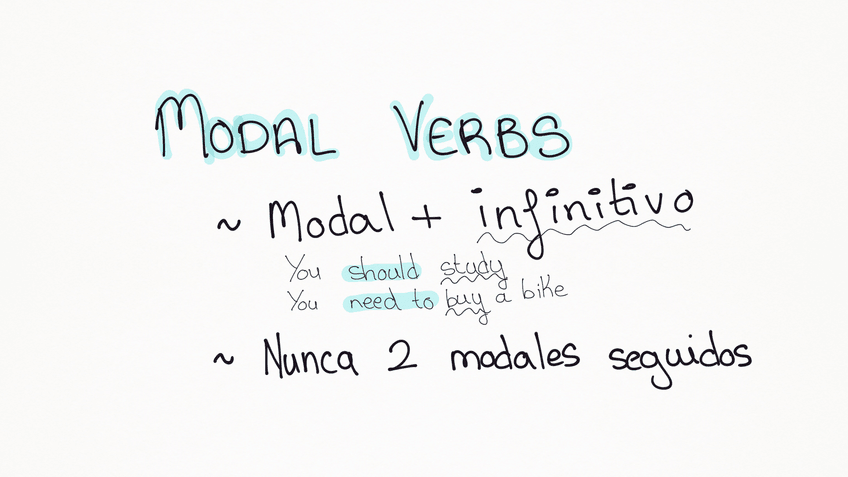 MODAL VERBS
~ Modal + infinitivo
You should study
You need to buy a bike
~ Nunca 2 modales seguidos